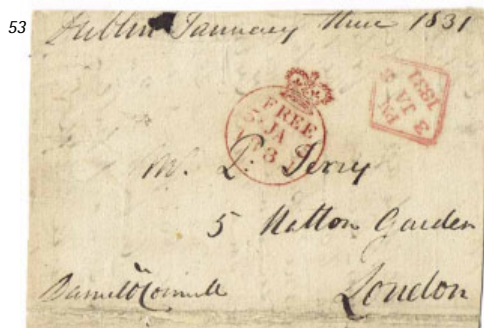 53
Dublin January three 1831
FREE
5 JA 5
1831
PM
3 JA 3
1831
Mr. P. Terry
5 Hatton Garden
London
Daniel O'Connell